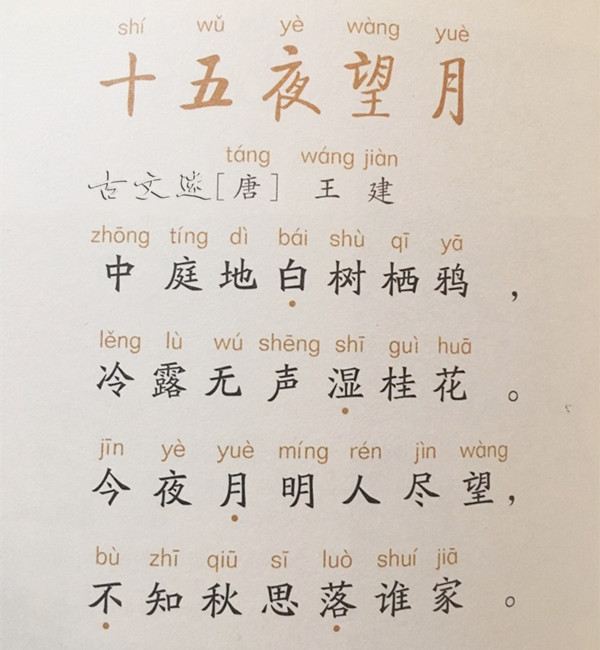 shí wǔ yè wàng yuè
十五夜望月
táng wáng jiàn
古文迷[唐] 王建
zhōng tíng dì bái shù qī yā
中庭地白树栖鸦，
lěng lù wú shēng shī guì huā
冷露无声湿桂花。
jīn yè yuè míng rén jìn wàng
今夜月明人尽望，
bù zhī qiū sī luò shuí jiā
不知秋思落谁家。